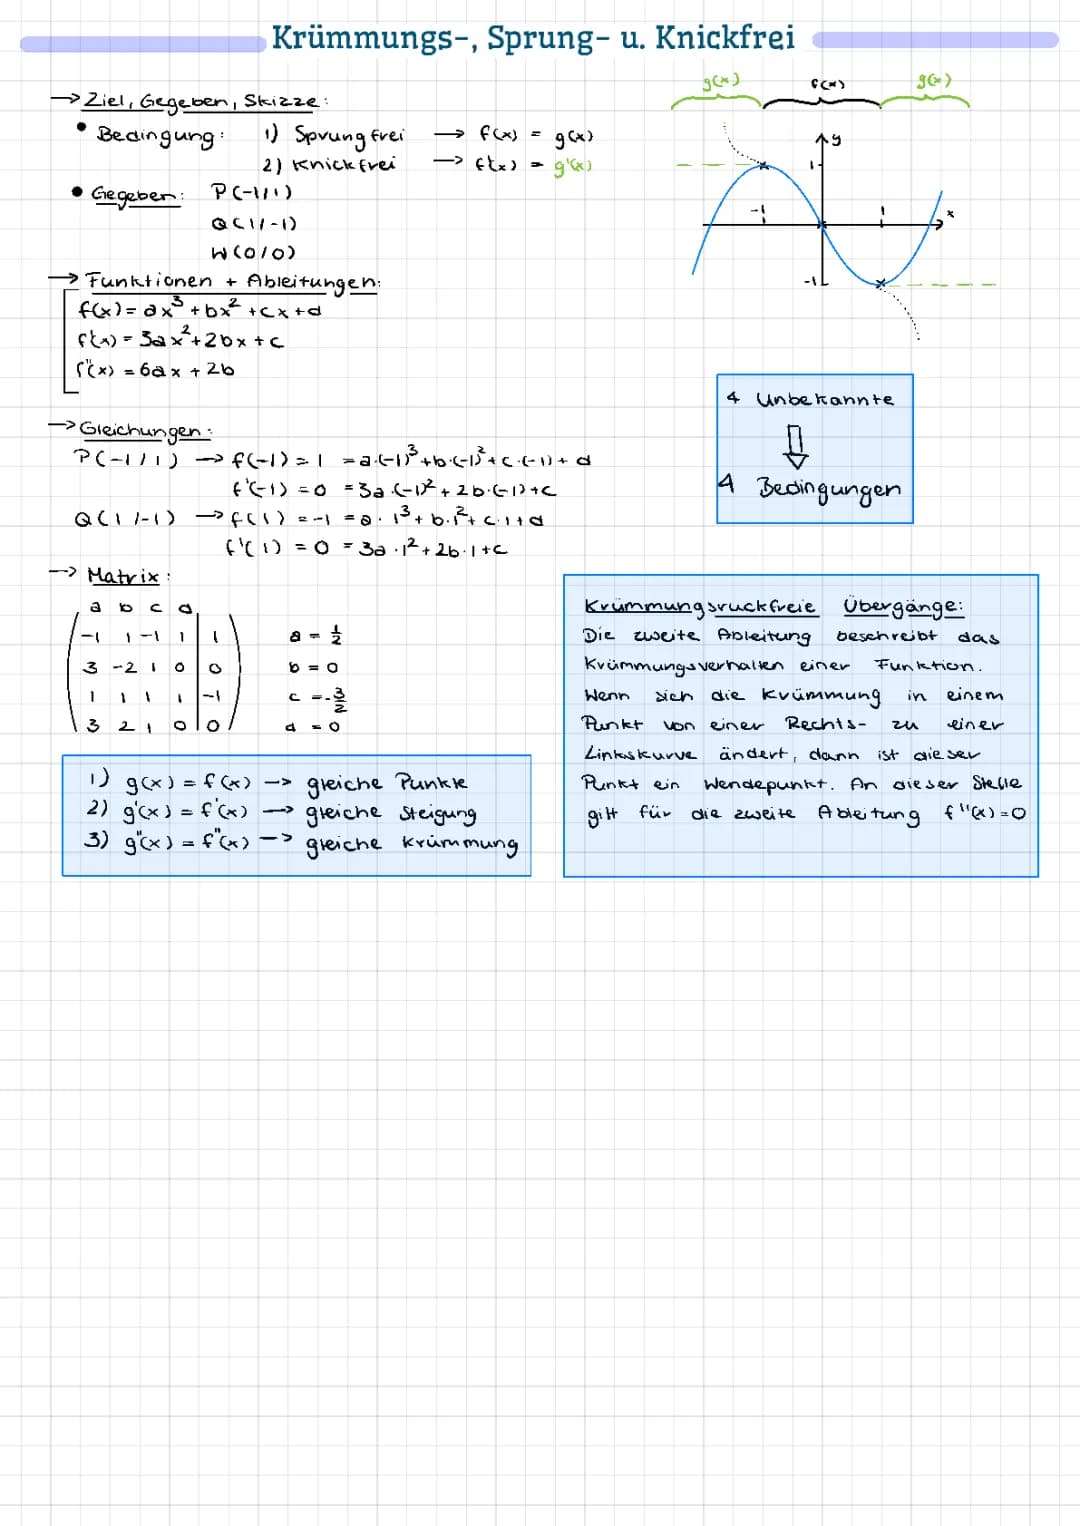 Krümmungs-, Sprung- u. Knickfrei
→ Ziel, Gegeben, Skizze:
• Bedingung: 1) Sprungfrei → f(x) = g(x)
2) Knickfrei → f'(x) = g'(x)
• Gegeben: P(-1/1)
Q(1/-1)
W(0/0)
g(x) f(x) g(x)
y
1
-1 1 x
-1
→ Funktionen + Ableitungen:
f(x) = ax³ + bx² + cx + d
f'(x) = 3ax² + 2bx + c
f''(x) = 6ax + 2b
4 Unbekannte
⇓
4 Bedingungen
→ Gleichungen:
P(-1/1) → f(-1) = 1 = a·(-1)³ + b·(-1)² + c·(-1) + d
f'(-1) = 0 = 3a·(-1)² + 2b·(-1) + c
Q(1/-1) → f(1) = -1 = a·1³ + b·1² + c·1 + d
f'(1) = 0 = 3a·1² + 2b·1 + c
→ Matrix:
a b c d
-1 1 -1 1 | 1 a = 1/2
3 -2 1 0 | 0 b = 0
1 1 1 1 | -1 c = -3/2
3 2 1 0 | 0 d = 0
1) g(x) = f(x) → gleiche Punkte
2) g'(x) = f'(x) → gleiche Steigung
3) g''(x) = f''(x) → gleiche Krümmung
Krümmungsruckfreie Übergänge:
Die zweite Ableitung beschreibt das
Krümmungsverhalten einer Funktion.
Wenn sich die Krümmung in einem
Punkt von einer Rechts- zu einer
Linkskurve ändert, dann ist dieser
Punkt ein Wendepunkt. An dieser Stelle
gilt für die zweite Ableitung f''(x)=0